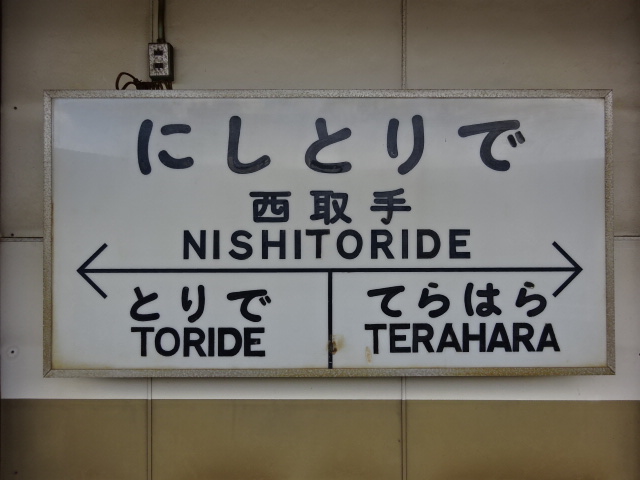 にしとりで
西取手
NISHITORIDE
とりで てらはら
TORIDE TERAHARA